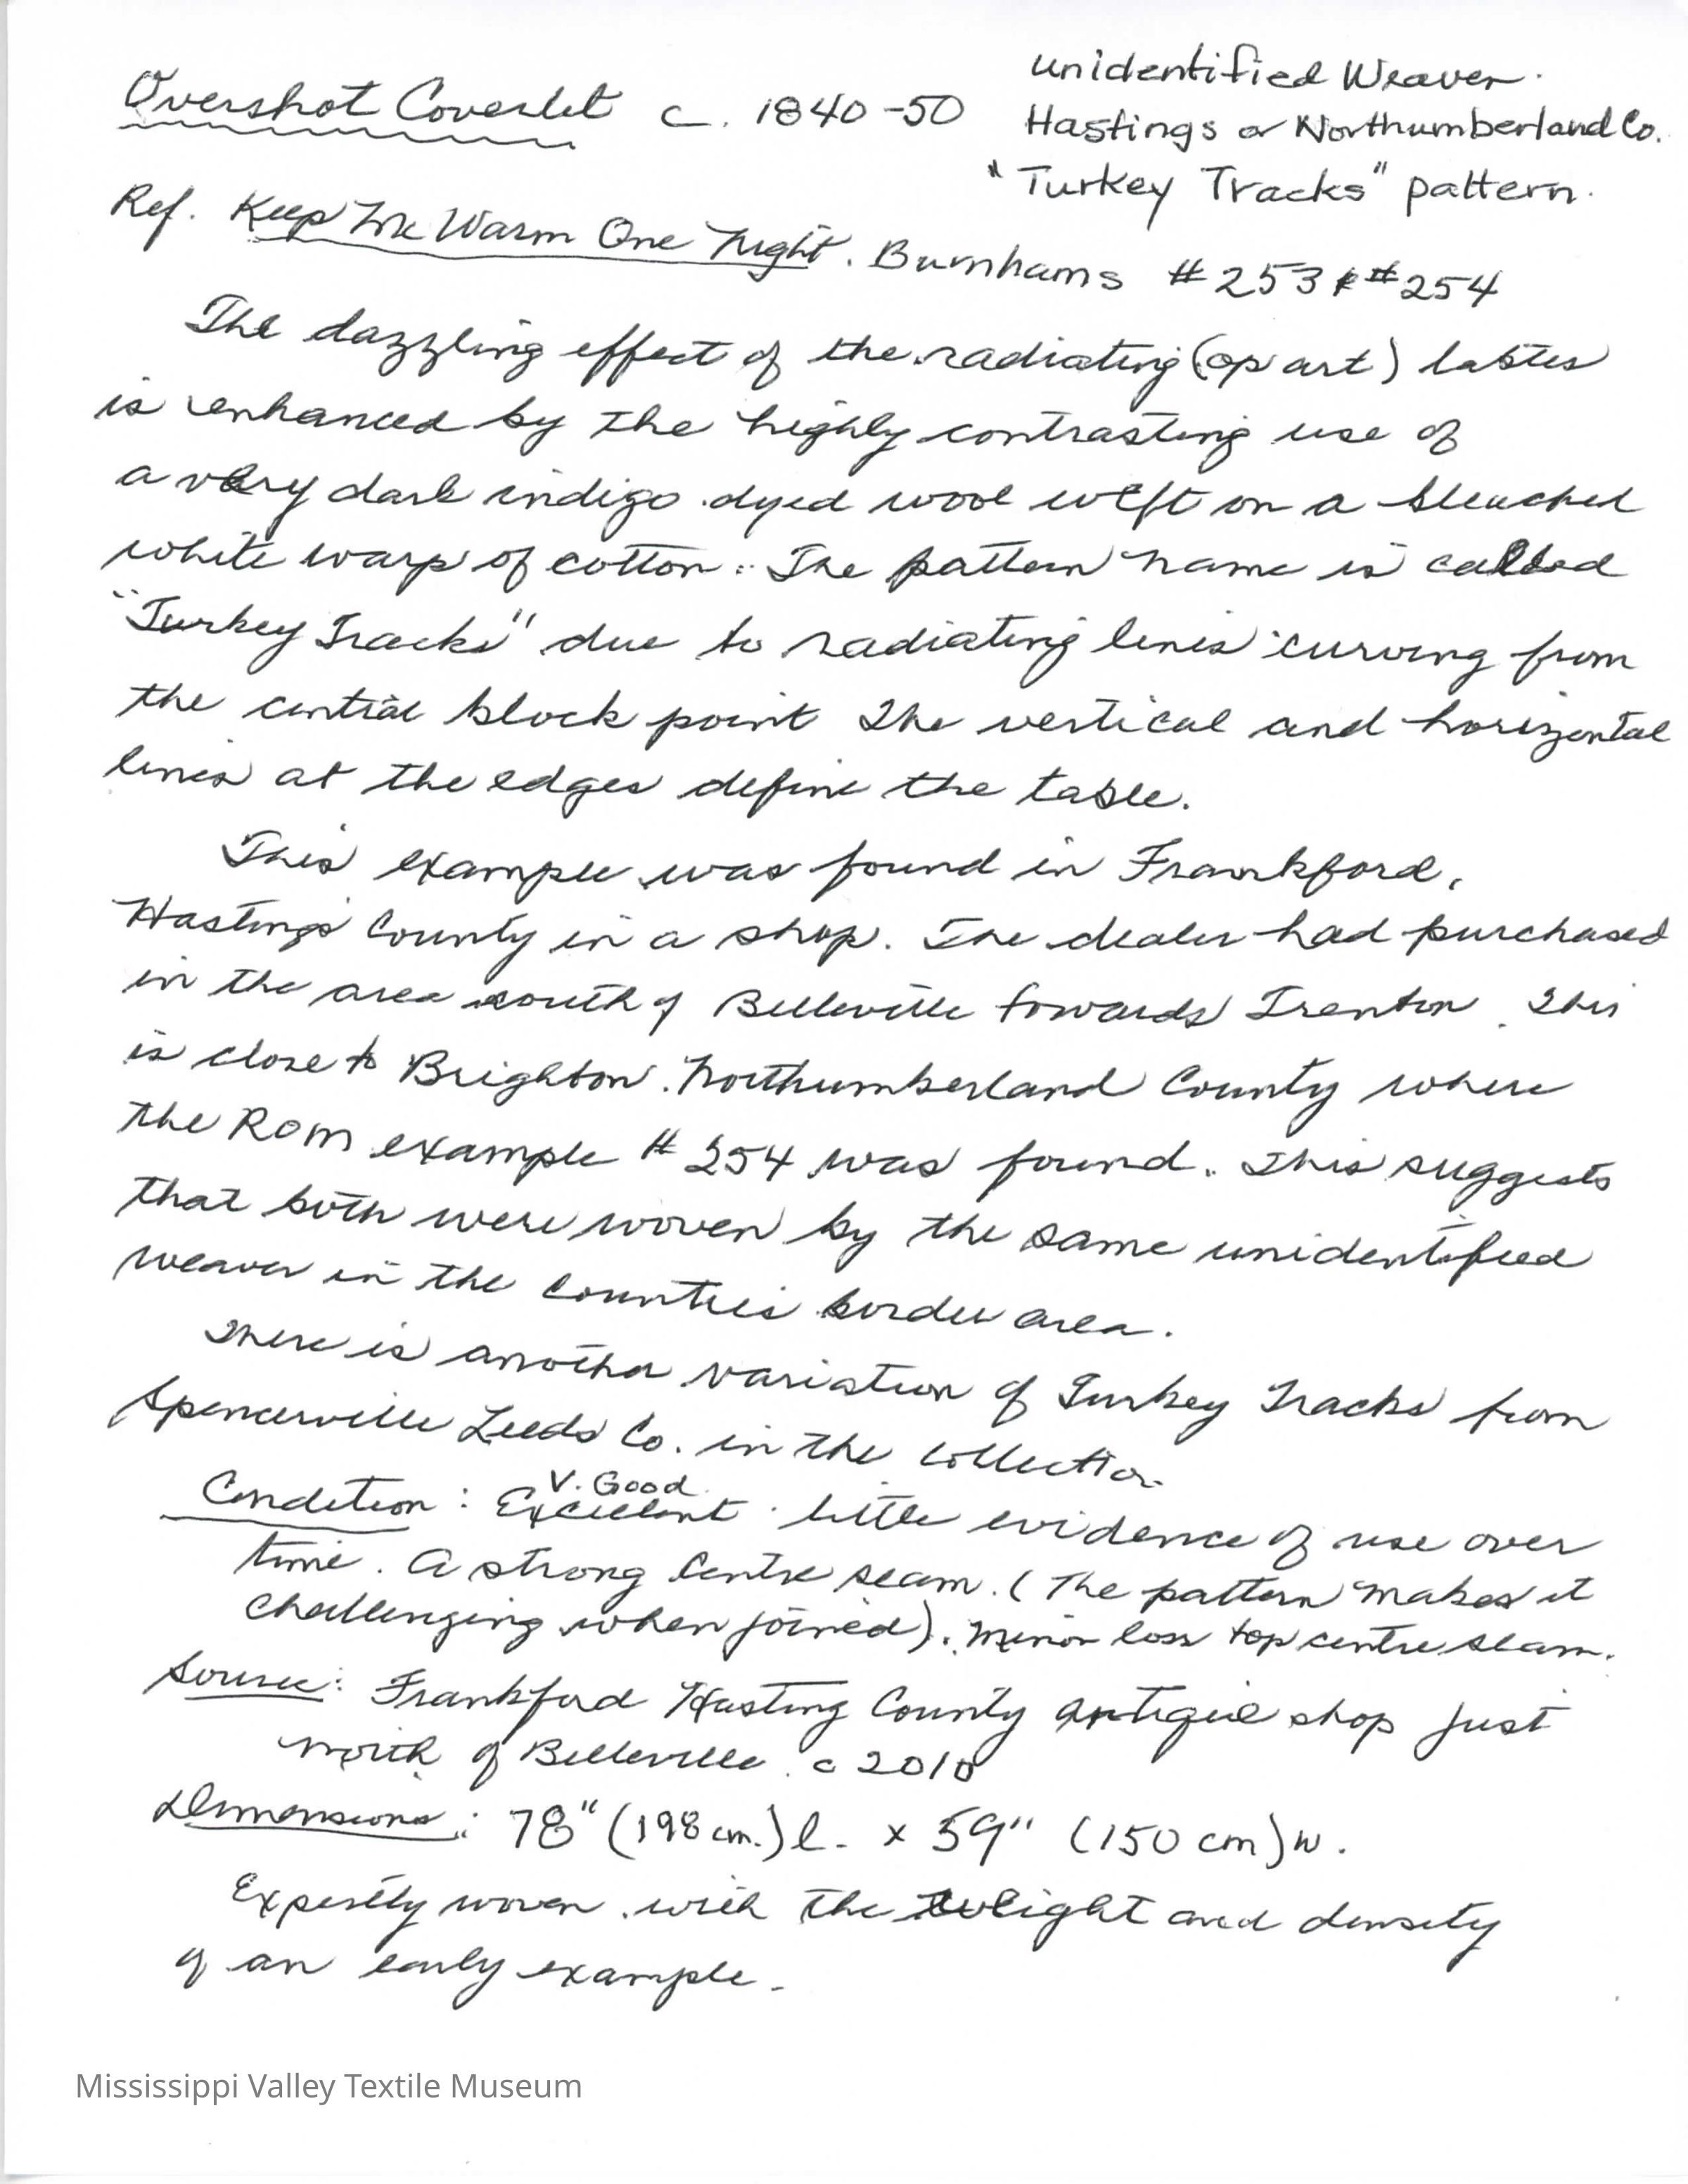 Overshot Coverlet c. 1840-50
unidentified Weaver.
Hastings or Northumberland Co.
"Turkey Tracks" pattern.
Ref. Keep Me Warm One Night. Burnhams #253 & #254
The dazzling effect of the radiating (op art) tables
is enhanced by the highly contrasting use of
a very dark indigo dyed wool weft on a bleached
white warp of cotton. The pattern name is called
"Turkey Tracks" due to radiating lines curving from
the central block point The vertical and horizontal
lines at the edges define the table.
This example was found in Frankford,
Hastings County in a shop. The dealer had purchased
in the area south of Belleville towards Trenton. This
is close to Brighton. Northumberland County where
the ROM example #254 was found. This suggests
that both were woven by the same unidentified
weaver in the counties border area.
There is another variation of Turkey Tracks from
Spencerville Leeds Co. in the collection
V. Good
Condition: Excellent. little evidence of use over
time. A strong centre seam. (The pattern makes it
challenging when joined). Minor loss top centre seam.
Source: Frankford Hasting County antique shop just
north of Belleville. c 2010
Dimensions: 78" (198 cm.) l. x 59" (150 cm) w.
Expertly woven with the weight and density
of an early example.
Mississippi Valley Textile Museum